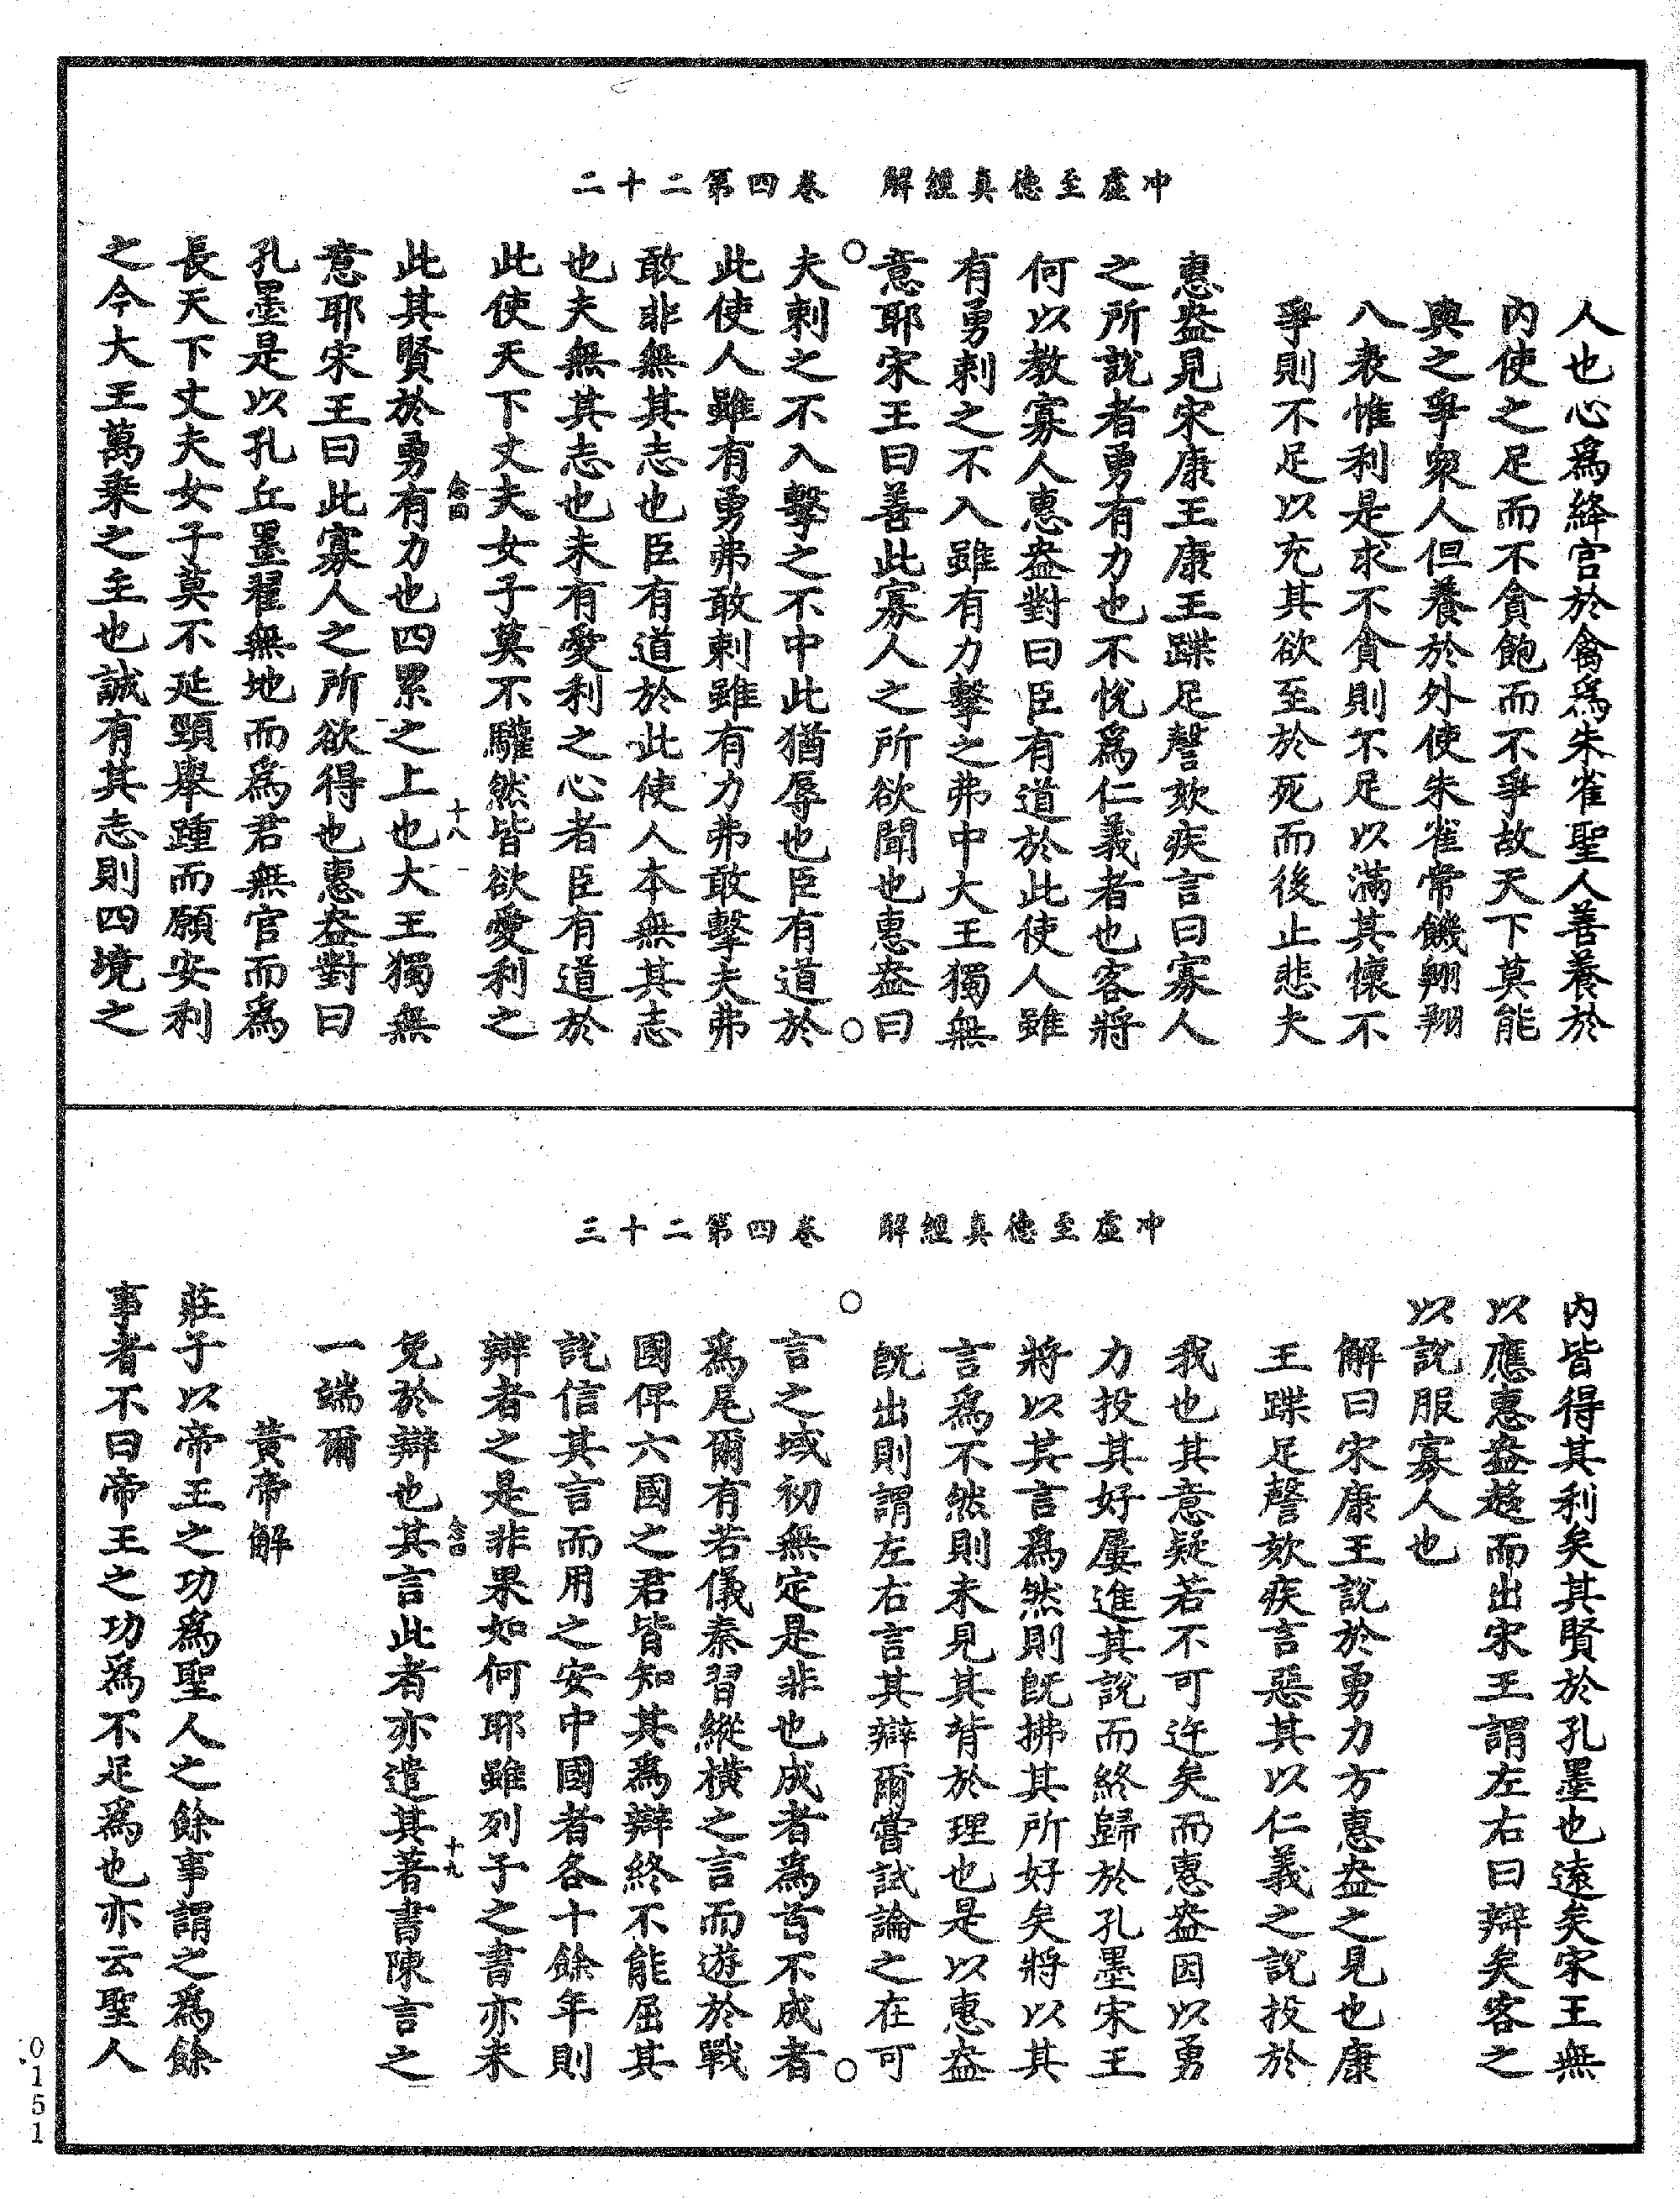 冲虛至德真經解　卷四第二十二
人也心為絳宮於禽為朱雀聖人善養於
內使之足而不貪飽而不爭故天下莫能
與之爭衆人但養於外使朱雀常饑翱翔
八表惟利是求不貪則不足以滿其懷不
爭則不足以充其欲至於死而後止悲夫
惠盎見宋康王康王蹀足謦欬疾言曰寡人
之所說者勇有力也不悅為仁義者也客將
何以教寡人惠盎對曰臣有道於此使人雖
有勇刺之不入雖有力擊之弗中大王獨無
意耶宋王曰善此寡人之所欲聞也惠盎曰
夫刺之不入擊之不中此猶辱也臣有道於
此使人雖有勇弗敢刺雖有力弗敢擊夫弗
敢非無其志也臣有道於此使人本無其志
也夫無其志也未有愛利之心者臣有道於
此使天下丈夫女子莫不驩然皆欲愛利之
念四　十八
此其賢於勇有力也四累之上也大王獨無
意耶宋王曰此寡人之所欲得也惠盎對曰
孔墨是以孔丘墨翟無地而為君無官而為
長天下丈夫女子莫不延頸舉踵而願安利
之今大王萬乘之主也誠有其志則四境之
冲虛至德真經解　卷四第二十三
內皆得其利矣其賢於孔墨也遠矣宋王無
以應惠盎趍而出宋王謂左右曰辯矣客之
以說服寡人也
解曰宋康王說於勇力方惠盎之見也康
王蹀足謦欬疾言惡其以仁義之說投於
我也其意疑若不可迕矣而惠盎因以勇
力投其好屢進其說而終歸於孔墨宋王
將以其言為然則旣拂其所好矣將以其
言為不然則未見其背於理也是以惠盎
旣出則謂左右言其辯爾嘗試論之在可
言之域初無定是非也成者為首不成者
為尾爾有若儀秦習縱橫之言而遊於戰
國俾六國之君皆知其為辯終不能屈其
說信其言而用之安中國者各十餘年則
辯者之是非果如何耶雖列子之書亦未
念四　十九
免於辯也其言此者亦遣其著書陳言之
一端爾
黃帝解
莊子以帝王之功為聖人之餘事謂之為餘
事者不曰帝王之功為不足為也亦云聖人
0151